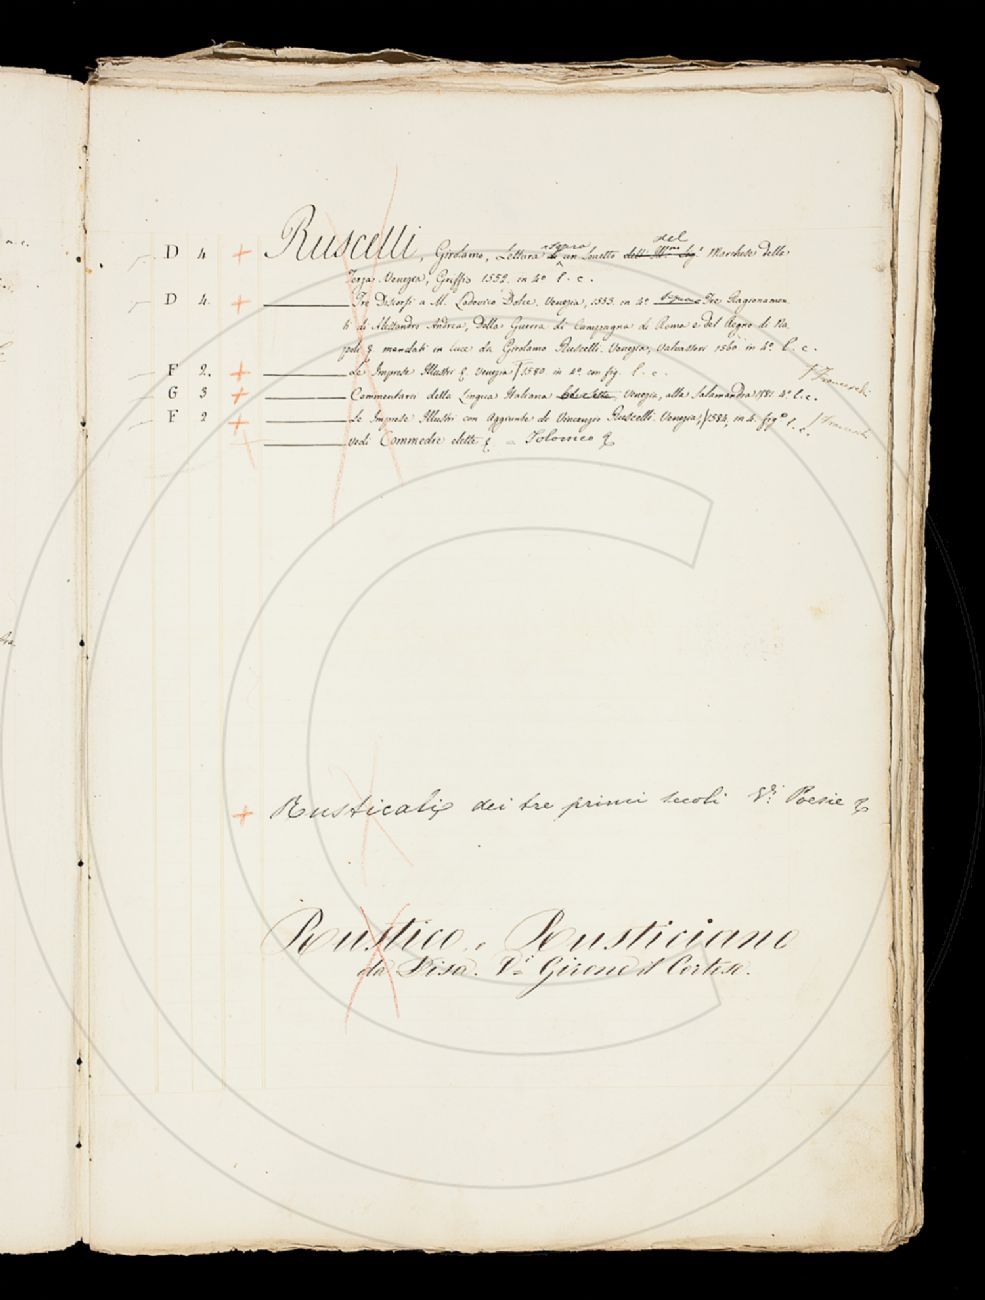 D 4 + Ruscelli, Girolamo, Lettura sopra un Sonetto dell' Ill.mo del Sig.r Marchese della
Terza. Venezia, Griffio 1552. in 4o l. c.
D 4. + Tre Discorsi a M. Lodovico Dolce. Venezia, 1553. in 4o Tre Ragionamen
ti di Alessandro Andrea, Della Guerra di Campagna di Roma e del Regno di Na
poli & mandati in luce da Girolamo Ruscelli. Venezia, Valvassori 1560 in 4o. l. c.
F 2. + Le Imprese Illustri & Venezia 1580 in 4o. con fig. l. c. Franceschi
G 3 + Commentarii della Lingua Italiana Venezia, alla Salamandra 1581. 4o. l. c.
F 2 + Le Imprese Illustri con Aggiunte di Vincenzio Ruscelli. Venezia, 1584, in 4. fig.o l. c. Franceschi
vedi Commedie elette & = Tolomeo &
+ Rusticali dei tre primi secoli V.i Poesie &
Rustico, o Rusticiano
da Pisa. V.i Girone il Cortese.